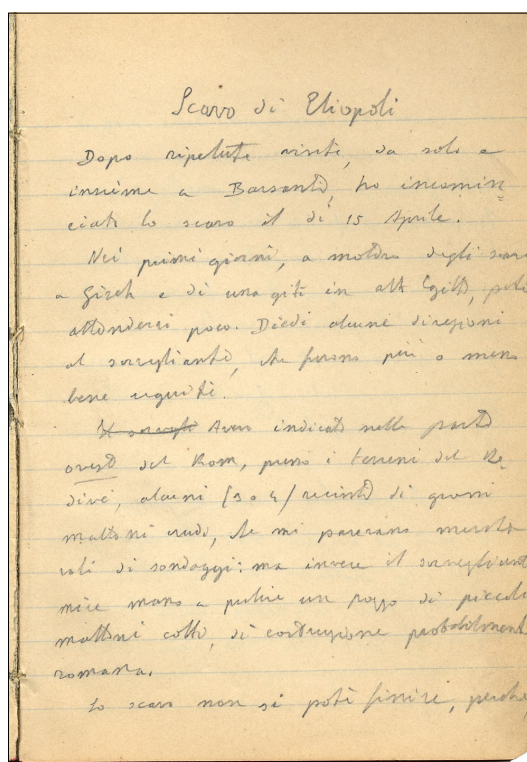 Scavo di Eliopoli
Dopo ripetute visite, da solo e
insieme a Barsanti, ho incomin=
ciato lo scavo il dì 15 Aprile.
Nei primi giorni, a motivo degli scavi
a Gizeh e di una gita in alto Egitto, potei
attenderci poco. Diedi alcune direzioni
al sorvegliante, che furono più o meno
bene eseguite.
Avevo indicato nella parte
ovest del Kom, presso i terreni del Ke-
divè, alcuni (3 o 4) recinti di grossi
mattoni crudi, che mi parevano meritevoli
di sondaggi: ma invece il sorvegliante
mise mano a pulire un pozzo di piccoli
mattoni cotti, di costruzione probabilmente
romana.
Lo scavo non si potè finire, perchè